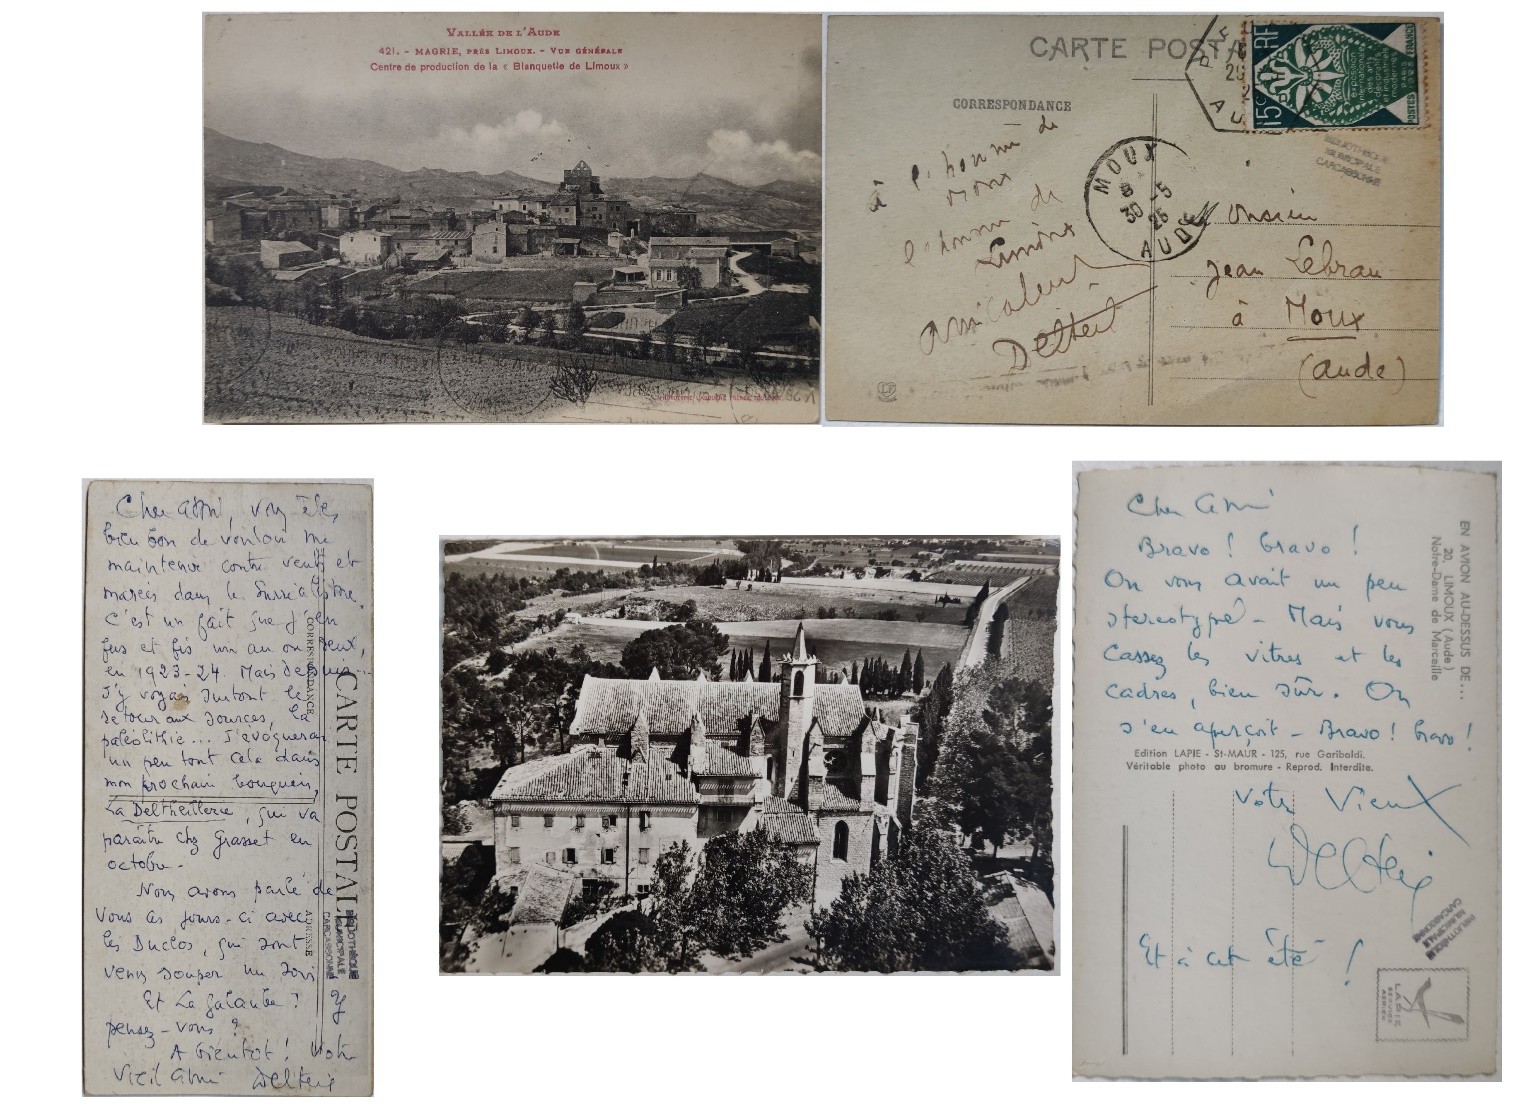 VALLÉE DE L'AUDE
421. - MAGRIE, PRÈS LIMOUX. - VUE GÉNÉRALE
Centre de production de la « Blanquette de Limoux »
CARTE POSTA
CORRESPONDANCE
à l'homme de
Moux
l'homme de
Limoux
amicalement
Delteil
15c RF
POSTES FRANCE
MOUX
8
30-5
25
AUDE
BIBLIOTHÈQUE
MUNICIPALE
CARCASSONNE
Monsieur
Jean Lebrau
à Moux
(Aude)
Cher ami, vous êtes
bien bon de vouloir me
maintenir contre vents et
marées dans le Surréalisme.
C'est un fait que j'en
fus et fis un an ou deux,
en 1923-24. Mais depuis...
J'y voyais surtout le
retour aux sources, la
paléolithie... J'évoquerai
un peu tout cela dans
mon prochain bouquin,
La Deltheillerie, qui va
paraître chez Grasset en
octobre.
Nous avons parlé de
vous ces jours-ci avec
les Duclos, qui sont
venus souper un soir
Et La Galaube ? Y
pensez-vous ?
A bientôt ! Votre
Vieil ami Delteil
CORRESPONDANCE
CARTE POSTALE
ADRESSE
BIBLIOTHÈQUE
MUNICIPALE
CARCASSONNE
Cher ami
Bravo ! bravo !
On vous avait un peu
stéréotypé - Mais vous
cassez les vitres et les
cadres, bien sûr. On
s'en aperçoit - Bravo ! bravo !
EN AVION AU-DESSUS DE...
20. LIMOUX (Aude)
Notre-Dame de Marceille
Edition LAPIE - St-MAUR - 125, rue Garibaldi.
Véritable photo au bromure - Reprod. Interdite.
Votre Vieux
Delteil
Et à cet été !
BIBLIOTHÈQUE
MUNICIPALE
CARCASSONNE
LAPIE
SERVICE
AÉRIEN